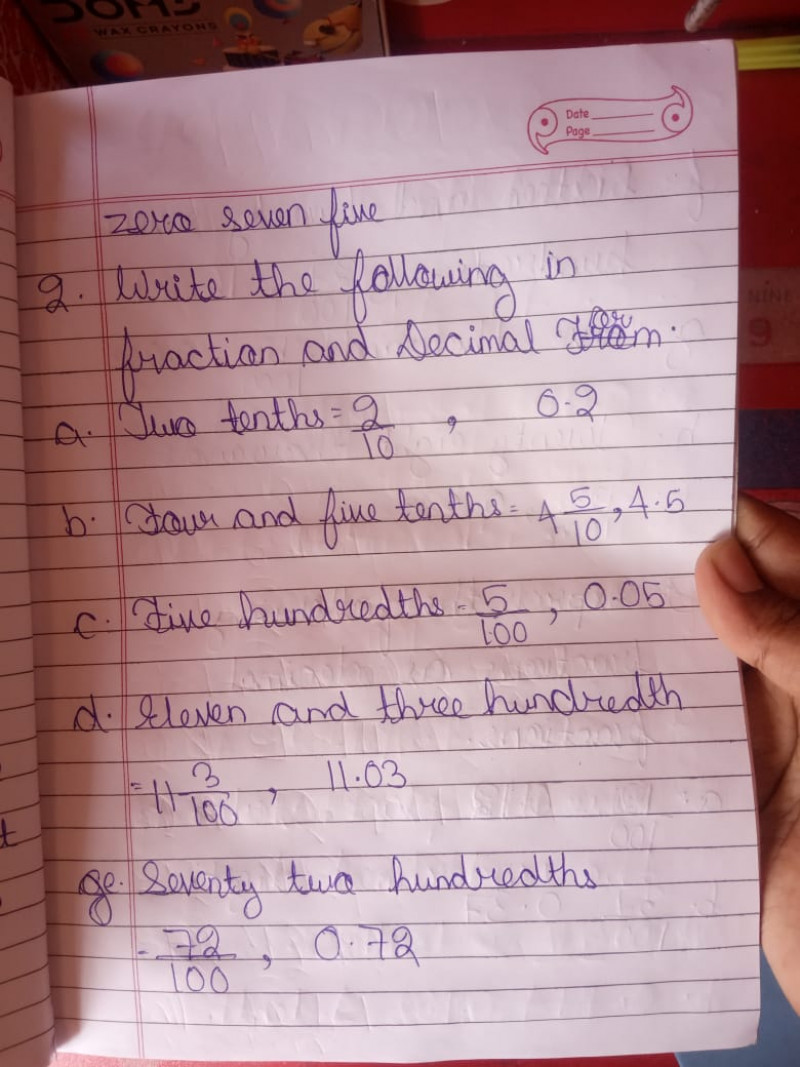 DOMS
WAX CRAYONS
Date
Page
zero seven five
2. Write the following in
fraction and Decimal Form.
a. Two tenths = 2/10 , 0.2
b. Four and five tenths = 4 5/10 , 4.5
c. Five hundredths = 5/100 , 0.05
d. Eleven and three hundredth
= 11 3/100 , 11.03
e. Seventy two hundredths
= 72/100 , 0.72
NINE
9
t